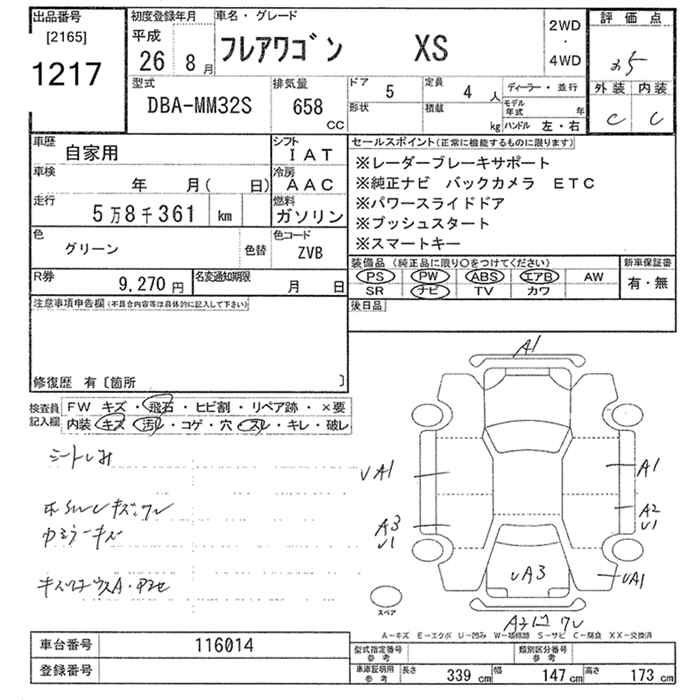 出品番号 初度登録年月 車名・グレード 2WD ・ 4WD 評価点
[2165] 平成
1217 26 8月 フレアワゴン XS
外装 内装
C C
型式 排気量 ドア 5 定員 4人 ディーラー・並行
DBA-MM32S 658 CC 形状 積載 kg モデル年式 年
ハンドル 左・右
車歴 自家用 シフト IAT
車検 年 月( 日) 冷房 AAC
走行 5万8千361 km 燃料 ガソリン
色 グリーン 色替 色コード ZVB
R券 9,270円 名変通知期限 月 日
セールスポイント(正常に機能するものに限ります)
※レーダーブレーキサポート
※純正ナビ バックカメラ ETC
※パワースライドドア
※プッシュスタート
※スマートキー
装備品 (純正品に限り○をつけてください) 新車保証書
PS PW ABS エアB AW 有・無
SR ナビ TV カワ
後日品
注意事項申告欄(不具合内容等は具体的に記入して下さい)
修復歴 有〔箇所 〕
検査員 FW キズ・飛石・ヒビ割・リペア跡・×要
記入欄 内装 キズ・汚レ・コゲ・穴・スレ・キレ・破レ
A1
VA1 A1
A3 V1 A2 V1
VA3 VA1
スペア
A-キズ E-エクボ U-凹み W-補修跡 S-サビ C-腐食 XX-交換済
車台番号 116014 型式指定番号 参考 類別区分番号 参考
登録番号 車庫証明用 参考 長さ 339cm 幅 147cm 高さ 173cm